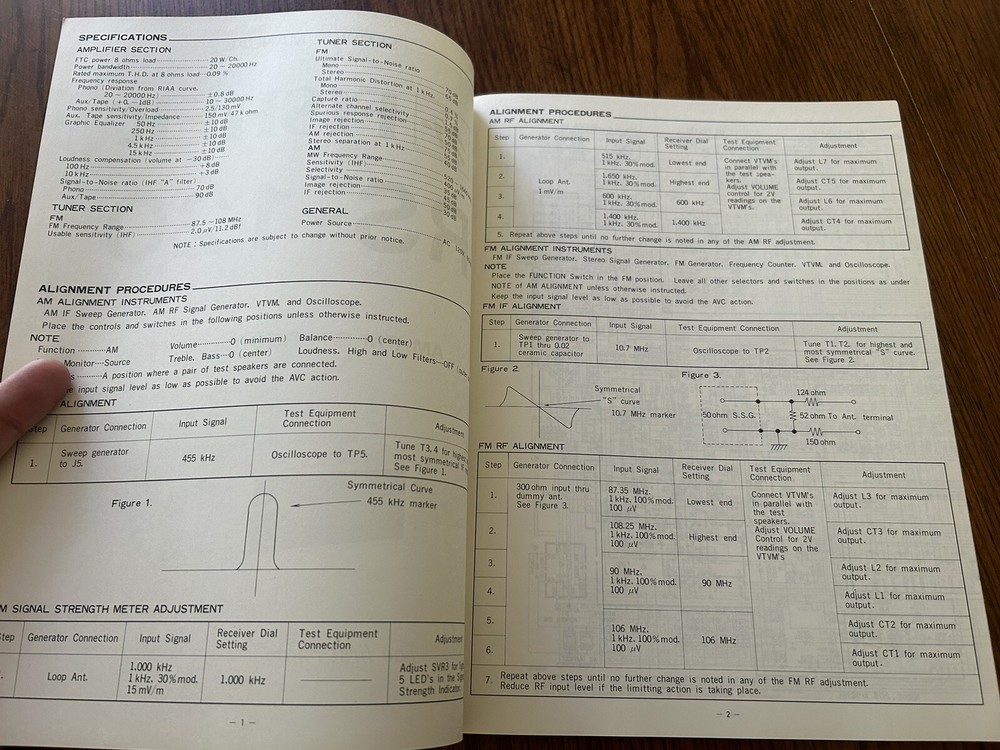 SPECIFICATIONS
AMPLIFIER SECTION
FTC power 8 ohms load 20 W/Ch.
Power bandwidth 20 ~ 20000 Hz
Rated maximum T.H.D. at 8 ohms load 0.09 %
Frequency response
Phono (Diviation from RIAA curve,
20 ~ 20000 Hz) ±0.8 dB
Aux/Tape (+0, -1dB) 10 ~ 30000 Hz
Phono sensitivity/Overload 2.5/130 mV
Aux. Tape sensitivity/Impedance 150 mV/47 k ohm
Graphic Equalizer 50 Hz ±10 dB
250 Hz ±10 dB
1 kHz ±10 dB
4.5 kHz ±10 dB
15 kHz ±10 dB
Loudness compensation (volume at -30 dB)
100 Hz +8 dB
10 kHz +3 dB
Signal-to-Noise ratio (IHF "A" filter)
Phono 70 dB
Aux/Tape 90 dB
TUNER SECTION
FM
FM Frequency Range 87.5 ~ 108 MHz
Usable sensitivity (IHF) 2.0 μV/11.2 dBf
TUNER SECTION
FM
Ultimate Signal-to-Noise ratio
Mono
Stereo
Total Harmonic Distortion at 1 kHz
Mono
Stereo
Capture ratio
Alternate channel selectivity
Spurious response rejection
Image rejection
IF rejection
AM rejection
Stereo separation at 1 kHz
AM
MW Frequency Range
Sensitivity (IHF)
Selectivity
Signal-to-Noise ratio
Image rejection
IF rejection
GENERAL
Power Source AC
NOTE : Specifications are subject to change without prior notice.
ALIGNMENT PROCEDURES
AM ALIGNMENT INSTRUMENTS
AM IF Sweep Generator, AM RF Signal Generator, VTVM, and Oscilloscope.
Place the controls and switches in the following positions unless otherwise instructed.
NOTE
Function AM Volume 0 (minimum) Balance 0 (center)
Monitor Source Treble, Bass 0 (center) Loudness, High and Low Filters OFF
A position where a pair of test speakers are connected.
input signal level as low as possible to avoid the AVC action.
ALIGNMENT
Step Generator Connection Input Signal Test Equipment Connection Adjustment
1. Sweep generator to J5. 455 kHz Oscilloscope to TP5. Tune T3, 4 for
most symmetrical
See Figure 1.
Figure 1.
Symmetrical Curve
455 kHz marker
SIGNAL STRENGTH METER ADJUSTMENT
Step Generator Connection Input Signal Receiver Dial Setting Test Equipment Connection Adjustment
Loop Ant. 1,000 kHz 1 kHz, 30% mod. 15 mV/m 1,000 kHz Adjust SVR3 for
5 LED's in the
Strength Indicator
- 1 -
ALIGNMENT PROCEDURES
AM RF ALIGNMENT
Step Generator Connection Input Signal Receiver Dial Setting Test Equipment Connection Adjustment
1. Loop Ant. 1 mV/m 515 kHz, 1 kHz, 30% mod. Lowest end Connect VTVM's in parallel with the test speakers. Adjust VOLUME control for 2V readings on the VTVM's. Adjust L7 for maximum output.
2. 1,650 kHz, 1 kHz, 30% mod. Highest end Adjust CT5 for maximum output.
3. 600 kHz, 1 kHz, 30% mod. 600 kHz Adjust L6 for maximum output.
4. 1,400 kHz, 1 kHz, 30% mod. 1,400 kHz Adjust CT4 for maximum output.
5. Repeat above steps until no further change is noted in any of the AM RF adjustment.
FM ALIGNMENT INSTRUMENTS
FM IF Sweep Generator, Stereo Signal Generator, FM Generator, Frequency Counter, VTVM, and Oscilloscope.
NOTE
Place the FUNCTION Switch in the FM position. Leave all other selectors and switches in the positions as under
NOTE of AM ALIGNMENT unless otherwise instructed.
Keep the input signal level as low as possible to avoid the AVC action.
FM IF ALIGNMENT
Step Generator Connection Input Signal Test Equipment Connection Adjustment
1. Sweep generator to TP1 thru 0.02 ceramic capacitor 10.7 MHz Oscilloscope to TP2 Tune T1, T2, for highest and most symmetrical "S" curve. See Figure 2.
Figure 2.
Symmetrical
"S" curve
10.7 MHz marker
Figure 3.
124 ohm
50 ohm S.S.G.
52 ohm To Ant. terminal
150 ohm
FM RF ALIGNMENT
Step Generator Connection Input Signal Receiver Dial Setting Test Equipment Connection Adjustment
1. 300 ohm input thru dummy ant. See Figure 3. 87.35 MHz, 1 kHz, 100% mod. 100 μV Lowest end Connect VTVM's in parallel with the test speakers. Adjust VOLUME Control for 2V readings on the VTVM's Adjust L3 for maximum output.
2. 108.25 MHz, 1 kHz, 100% mod. 100 μV Highest end Adjust CT3 for maximum output.
3. 90 MHz, 1 kHz, 100% mod. 100 μV 90 MHz Adjust L2 for maximum output.
4. Adjust L1 for maximum output.
5. 106 MHz, 1 kHz, 100% mod. 100 μV 106 MHz Adjust CT2 for maximum output.
6. Adjust CT1 for maximum output.
7. Repeat above steps until no further change is noted in any of the FM RF adjustment.
Reduce RF input level if the limitting action is taking place.
- 2 -